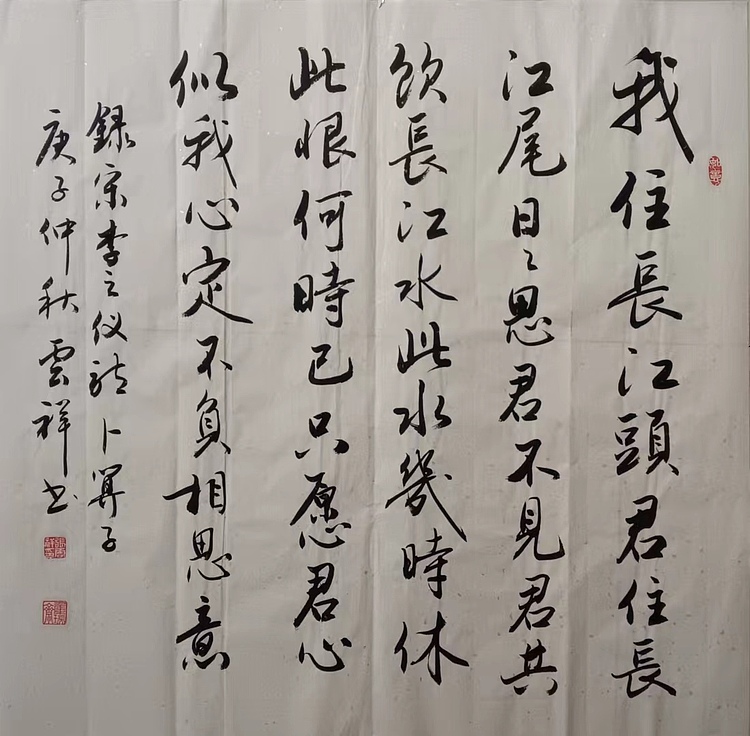 我住長江頭君住長
江尾日々思君不見君共
飲長江水此水幾時休
此恨何時已只愿君心
似我心定不負相思意
録宋李之仪卜算子
庚子仲秋雲祥书